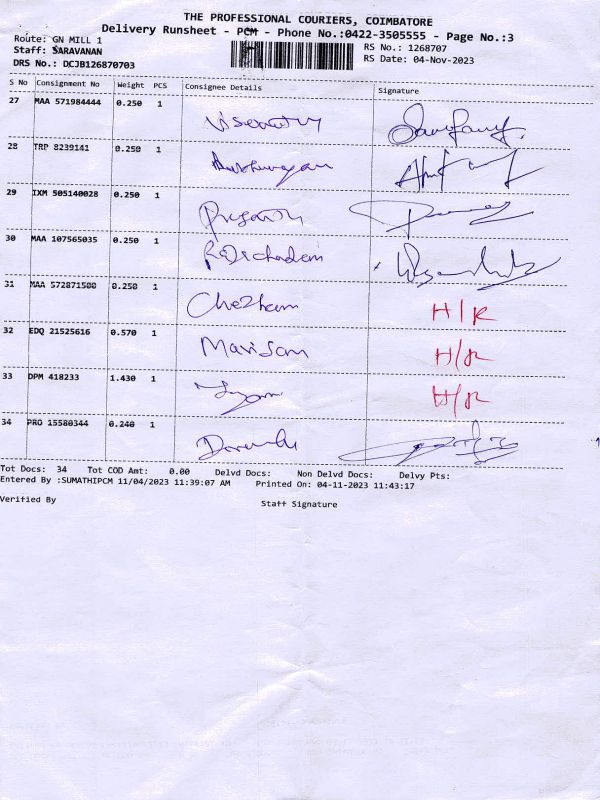 THE PROFESSIONAL COURIERS, COIMBATORE
Delivery Runsheet - PCM - Phone No.:0422-3505555 - Page No.:3
Route: GN MILL 1
Staff: SARAVANAN
RS No.: 1268707
RS Date: 04-Nov-2023
DRS No.: DCJB126870703
S No Consignment No Weight PCS Consignee Details Signature
27 MAA 571984444 0.250 1
28 TRP 8239141 0.250 1
29 IXM 505140028 0.250 1
30 MAA 107565035 0.250 1
31 MAA 572871500 0.250 1 H/R
32 EDQ 21525616 0.570 1 H/R
33 DPM 418233 1.430 1 H/R
34 PRO 15580344 0.240 1
Tot Docs: 34 Tot COD Amt: 0.00 Delvd Docs: Non Delvd Docs: Delvy Pts:
Entered By :SUMATHIPCM 11/04/2023 11:39:07 AM Printed On: 04-11-2023 11:43:17
Verified By Staff Signature